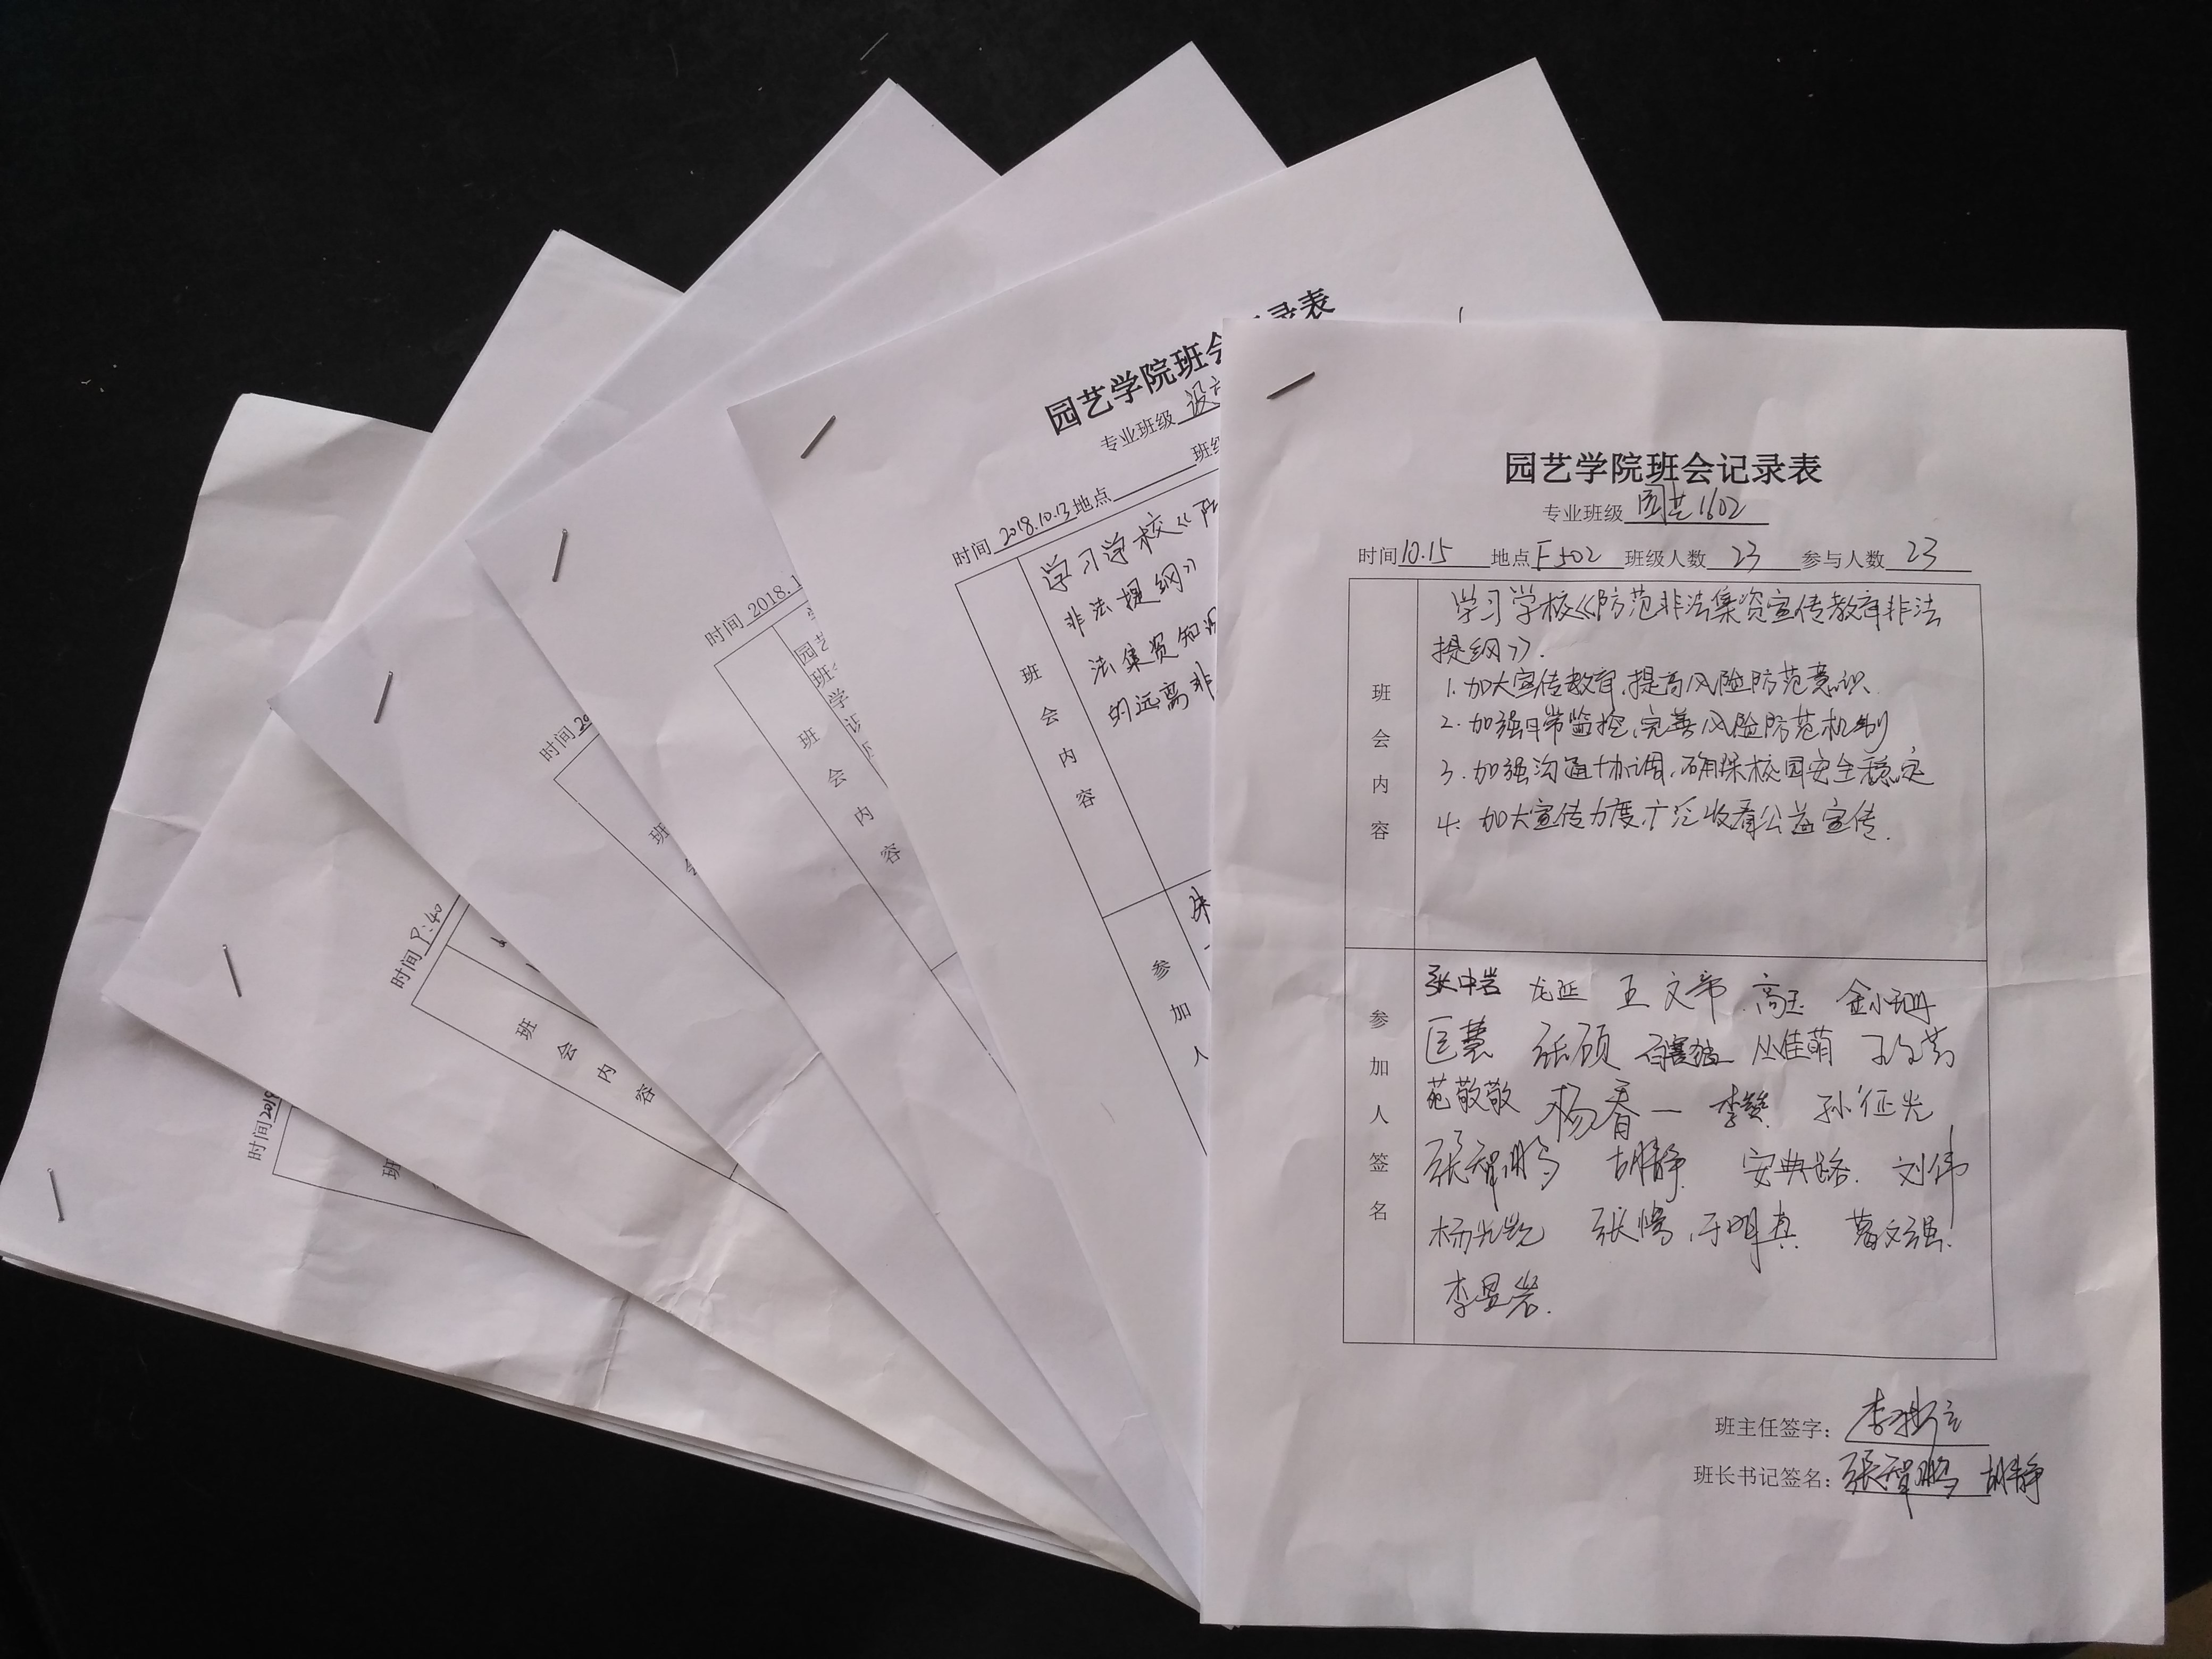 园艺学院班会记录表
专业班级 园艺1602
时间 10.15 地点 F502 班级人数 23 参与人数 23
班会内容
学习学校《防范非法集资宣传教育非法
提纲》.
1.加大宣传教育,提高风险防范意识
2.加强日常监控,完善风险防范机制
3.加强沟通协调,确保校园安全稳定
4.加大宣传力度,广泛收看公益宣传.
参加人签名
张中岩 龙延 王文帝 高玉 金小珊
匡慧 张硕 丛佳萌
苑敬敬 杨春一 李赞 孙征光
张智鹏 胡静 安典路 刘伟
杨光凯 张鸿 于明真 葛文强
李昱岩.
班主任签字:
班长书记签名: 张智鹏 胡静
园艺学院班会记录表
专业班级
时间 2018.10.13 地点
班会内容
学习学校《
非法提纲》
法集资知识
的远离非
参加人
时间 2018.1
班会内容
时间 20
班
时间 9:40
班会内容
时间 2018
班